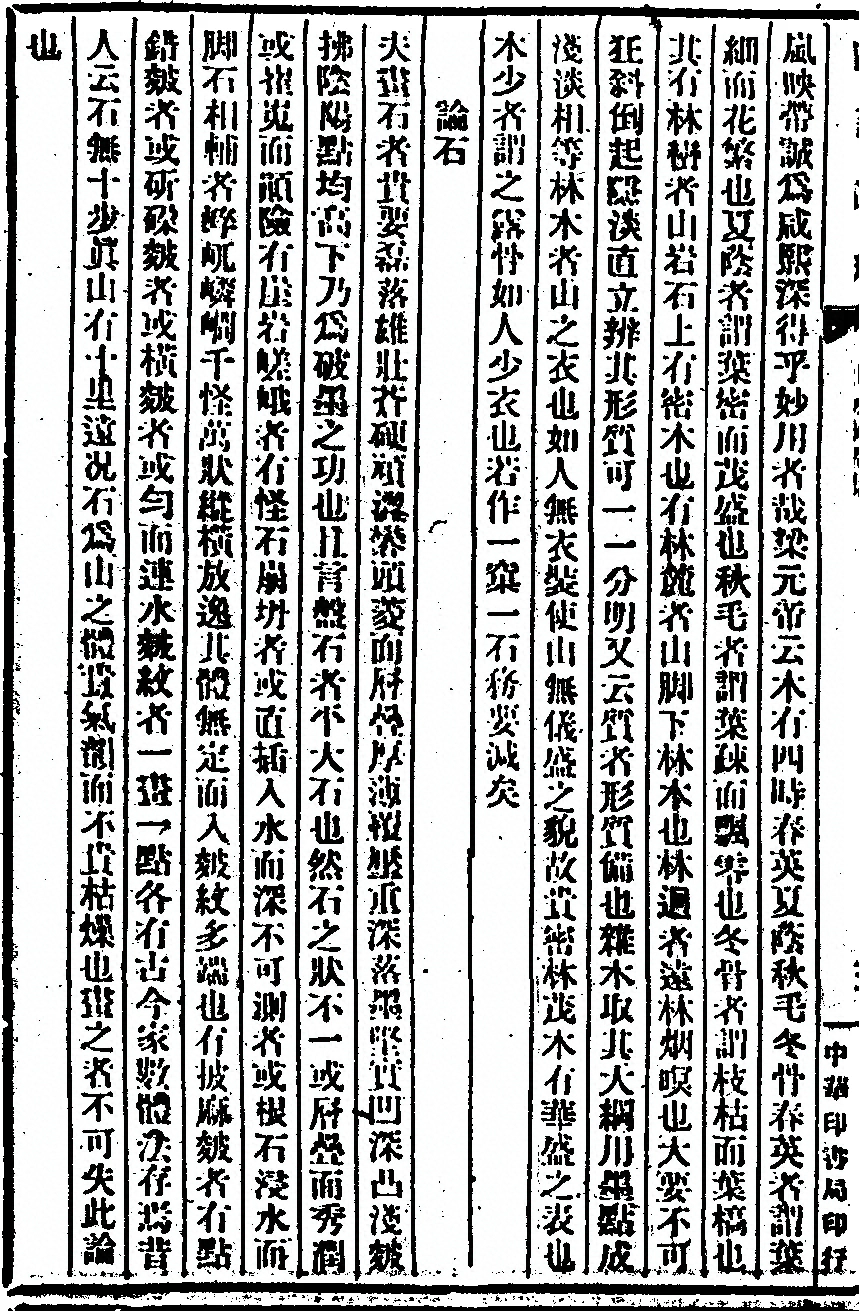 嵐映帶誠爲咸熙深得乎妙用者哉梁元帝云木有四時春英夏蔭秋毛冬骨春英者謂葉
細而花繁也夏蔭者謂葉密而茂盛也秋毛者謂葉疎而飄零也冬骨者謂枝枯而葉槁也
其有林巒者山岩石上有密木也有林麓者山脚下林木也林迥者遠林烟暝也大要不可
狂斜倒起隱淡直立辨其形質可一一分明又云質者形質備也雜木取其大綱用墨點成
淺淡相等林木者山之衣也如人無衣裝使山無儀盛之貌故貴密林茂木有華盛之表也
木少者謂之露骨如人少衣也若作一窠一石務要減矣
論石
夫畫石者貴要磊落雄壯蒼硬頑澀礬頭菱面層疊厚薄覆壓重深落墨堅實凹深凸淺皴
拂陰陽點均高下乃爲破墨之功也且言盤石者平大石也然石之狀不一或層疊而秀潤
或崔嵬而顛險有崖岩嵯峨者有怪石崩坍者或直插入水而深不可測者或根石浸水而
脚石相輔者崪屼嶙峋千怪萬狀縱橫放逸其體無定而入皴紋多端也有披麻皴者有點
錯皴者或斫𥗬皴者或橫皴者或勻而連水皴紋者一畫一點各有古今家數體法存焉昔
人云石無十步眞山有十里遠况石爲山之體貴氣韻而不貴枯燥也畫之者不可失此論
也
中華印書局印行